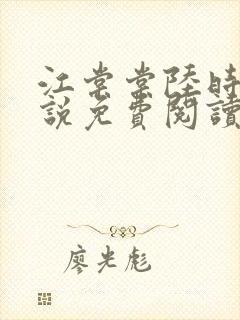 江棠棠陸時
說免費閱讀
廖光彪